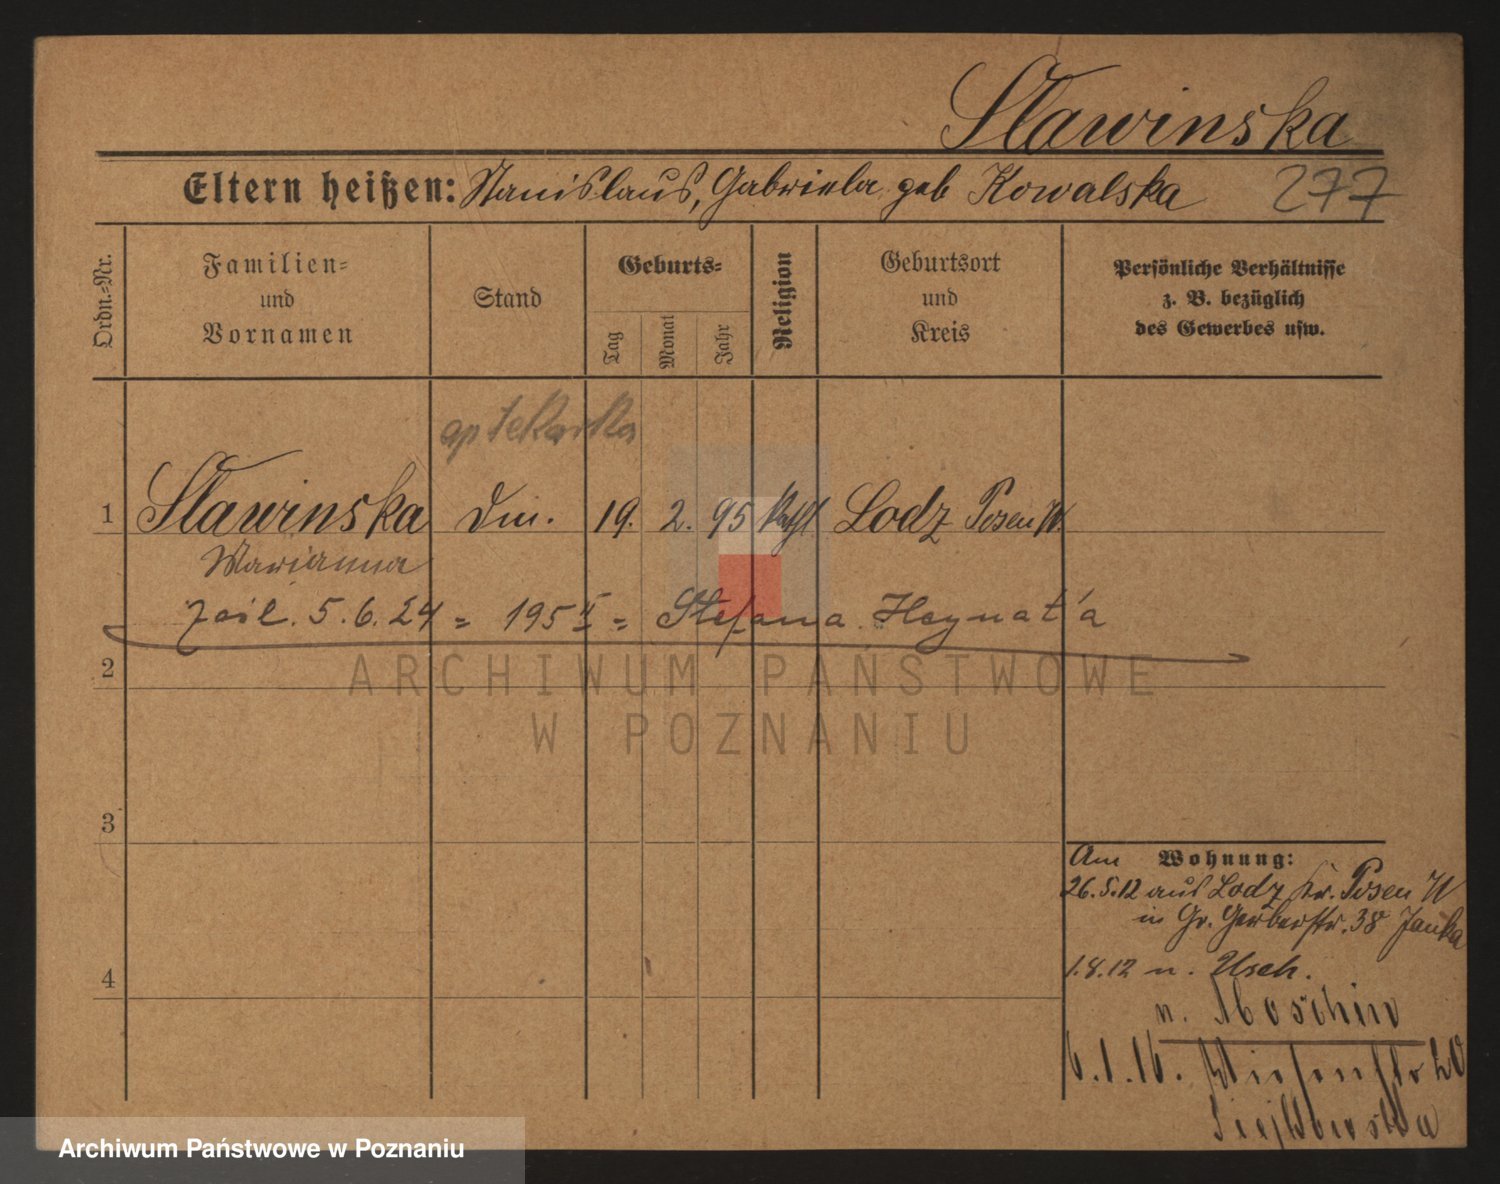 Slawinska
Eltern heißen: Stanislaus, Gabriela geb Kowalska 277
Ordn.-Nr.
Familien-
und
Vornamen
Stand
Geburts-
Tag
Monat
Jahr
Religion
Geburtsort
und
Kreis
Persönliche Verhältnisse
z. B. bezüglich
des Gewerbes usw.
aptekarka
1 Slawinska 19. 2. 95 kath. Lodz Posen W.
Marianna
5.6.24 = 195 II = Stefana
2
ARCHIWUM PAŃSTWOWE
W POZNANIU
3
Am Wohnung:
26.5.12 aus Lodz Kr. Posen W
in Gr. Gerberstr. 38 Janka
1.8.12 n. Usch.
4
n. Moschin
6.1.16. Wiesenstr 20
Archiwum Państwowe w Poznaniu